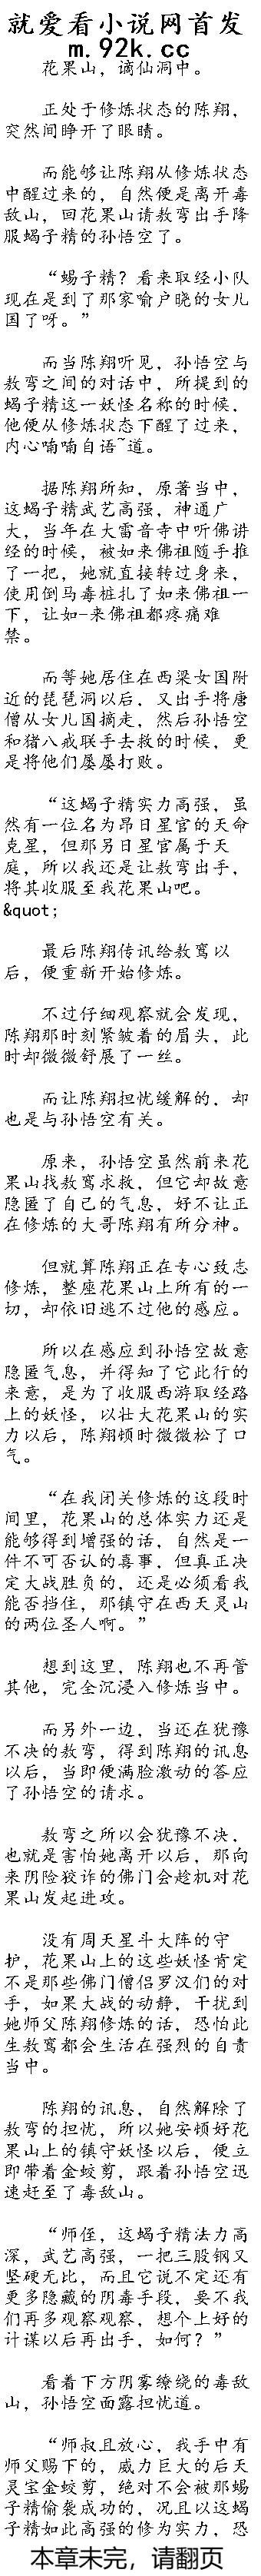 就爱看小说网首发
m.92k.cc
花果山，谪仙洞中。
正处于修炼状态的陈翔，
突然间睁开了眼睛。
而能够让陈翔从修炼状态
中醒过来的，自然便是离开毒
敌山，回花果山请敖鸾出手降
服蝎子精的孙悟空了。
“蝎子精？看来取经小队
现在是到了那家喻户晓的女儿
国了呀。”
而当陈翔听见，孙悟空与
敖鸾之间的对话中，所提到的
蝎子精这一妖怪名称的时候，
他便从修炼状态下醒了过来，
内心喃喃自语~道。
据陈翔所知，原著当中，
这蝎子精武艺高强，神通广
大，当年在大雷音寺中听佛讲
经的时候，被如来佛祖随手推
了一把，她就直接转过身来，
使用倒马毒桩扎了如来佛祖一
下，让如-来佛祖都疼痛难
禁。
而等她居住在西梁女国附
近的琵琶洞以后，又出手将唐
僧从女儿国摘走，然后孙悟空
和猪八戒联手去救的时候，更
是将他们屡屡打败。
“这蝎子精实力高强，虽
然有一位名为昴日星官的天命
克星，但那另日星官属于天
庭，所以我还是让敖鸾出手，
将其收服至我花果山吧。
&quot;
最后陈翔传讯给敖鸾以
后，便重新开始修炼。
不过仔细观察就会发现，
陈翔那时刻紧皱着的眉头，此
时却微微舒展了一丝。
而让陈翔担忧缓解的，却
也是与孙悟空有关。
原来，孙悟空虽然前来花
果山找敖鸾求救，但它却故意
隐匿了自己的气息，好不让正
在修炼的大哥陈翔有所分神。
但就算陈翔正在专心致志
修炼，整座花果山上所有的一
切，却依旧逃不过他的感应。
所以在感应到孙悟空故意
隐匿气息，并得知了它此行的
来意，是为了收服西游取经路
上的妖怪，以壮大花果山的实
力以后，陈翔顿时微微松了口
气。
“在我闭关修炼的这段时
间里，花果山的总体实力还是
能够得到增强的话，自然是一
件不可否认的喜事，但真正决
定大战胜负的，还是必须看我
能否挡住，那镇守在西天灵山
的两位圣人啊。”
想到这里，陈翔也不再管
其他，完全沉浸入修炼当中。
而另外一边，当还在犹豫
不决的敖鸾，得到陈翔的讯息
以后，当即便满脸激动的答应
了孙悟空的请求。
敖鸾之所以会犹豫不决，
也就是害怕她离开以后，那向
来阴险狡诈的佛门会趁机对花
果山发起进攻。
没有周天星斗大阵的守
护，花果山上的这些妖怪肯定
不是那些佛门僧侣罗汉们的对
手，如果大战的动静，干扰到
她师父陈翔修炼的话，恐怕此
生敖鸾都会生活在强烈的自责
当中。
陈翔的讯息，自然解除了
敖鸾的担忧，所以她安顿好花
果山上的镇守妖怪以后，便立
即带着金蛟剪，跟着孙悟空迅
速赶至了毒敌山。
“师侄，这蝎子精法力高
深，武艺高强，一把三股钢叉
坚硬无比，而且它说不定还有
更多隐藏的阴毒手段，要不我
们再多观察观察，想个上好的
计谋以后再出手，如何？”
看着下方阴雾缭绕的毒敌
山，孙悟空面露担忧道。
“师叔且放心，我手中有
师父赐下的，威力巨大的后天
灵宝金蛟剪，绝对不会被那蝎
子精偷袭成功的，况且以这蝎
子精如此高强的修为实力，恐
本章未完，请翻页